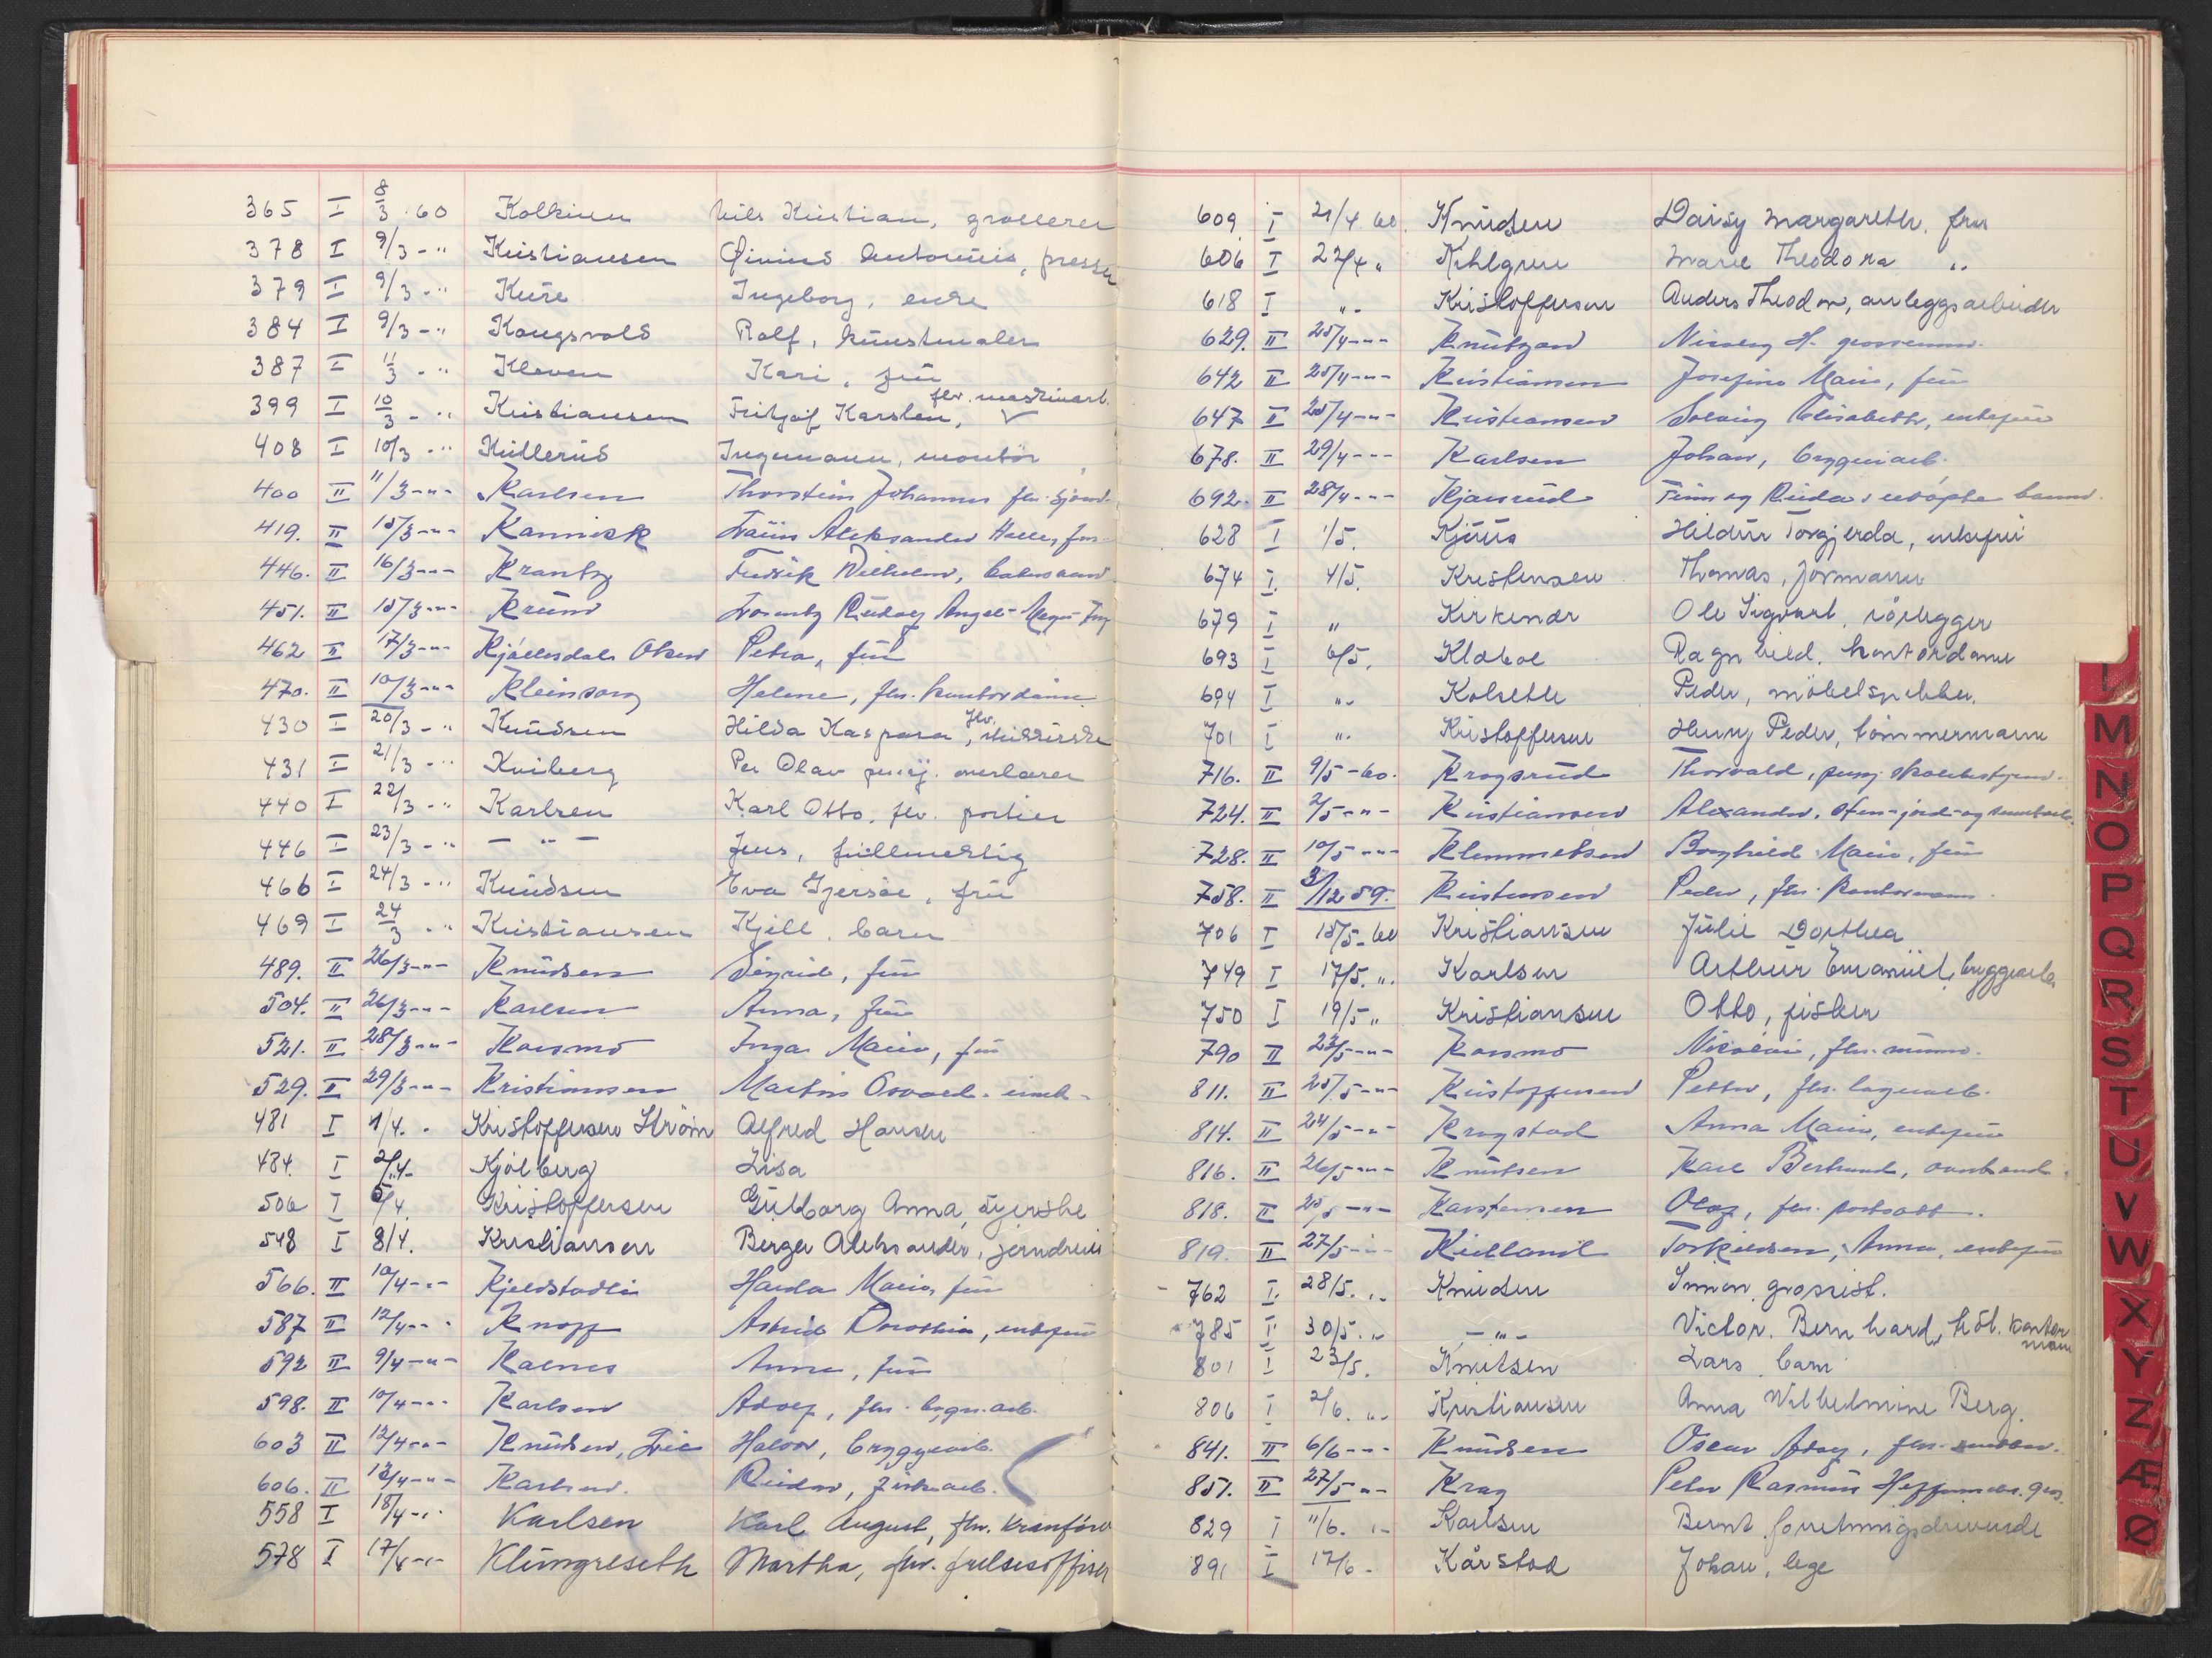 365 I 8/3 60 Kolkinn Nils Kristian, grosserer
378 I 9/3 - " Kristiansen Qvinius Antonius, presser
379 I 9/3 - " Kure Ingeborg, enke
384 I 9/3 - " Kongsvold Rolf, kunstmaler
387 I 11/3 - " Kleven Kari, frü
flv. maskinarb.
399 I 10/3 - " Kristiansen Fritjof Karsten, ✓
408 I 10/3 - " Kullerüd Ingemann, montör
400 II 11/3 - " - Karlsen Thorstein Johannes flv. sjömd.
419. II 15/3 - " - Kannick Aleksander
446. II 16/3 - " - Krantz Fredrik Wilhelm,
451. II 15/3 - " - Krünn
462 II 17/3 - " - Kjöllesdal Olsen Petra, frü
470. II 10/3 - " - Kleinsorg Helene, flv. kontordame
430 I 20/3 - " Knudsen Hilda Kaspara, flv.
431 I 21/3 - " Kviberg Per Olav pensj. overlærer
440 I 22/3 - " Karlsen Karl Otto, flv. portier
446 I 23/3 - " - " - Jens, fullmektig
466 I 24/3 - " Knüdsen Eva Gjersöe, frü
469 I 24/3 - " Kristiansen Kjell, barn
489. II 26/3 - " - Knudsen Sigrid, frü
504. II 26/3 - " - Karlsen Anna, frü
521. II 28/3 - " - Korsmo Inga Marie, frü
529. II 29/3 - " - Kristiansen Martin Osvald
481 I 1/4. Kristoffersen Ström Alfred Hansen
484. I 2/4 Kjölberg Lisa
506 I 5/4 Kristoffersen Gülborg Anna, syerske
548 I 8/4. Kristiansen Berger Aleksander, jerndreier
566. II 10/4 - " - Kjeldstadli Harda Marie, frü
587 II 12/4 - " Knopp Astrid Dorothea, enkefrü
592 II 9/4 - " - Karnes Anna, frü
598. II 10/4 - " - Karlsen Adolf, flv. bygn.arb.
603 II 12/4 - " - Knudsen, Lie Halvor, bryggearb.
606. II 13/4 - " - Karlsen. Reidar,
558 I 18/4 - " Karlsen Karl August, flv. kranförer
578 I 17/4 - " - Klüngreseth Martha, flv. frelsesoffiser
609 I 21/4 60. Knudsen Daisy Margarethe, frü
606 I 22/4 " Kihlgren Marie Theodora "
618 I " - Kristoffersen Anders Theodor, anleggsarbeider
629. II 25/4 - " - Knutzon H.
642 II 25/4 - " - Kristiansen Josefine Marie, frü
647 II 25/4 - " - Kristiansen Solveig Elisabeth, enkefrü
678. II 29/4 - " - Karlsen Johan, bryggeriarb.
692. II 28/4 - " - Kjærrüd Finn og udöpte barn.
628 I 1/5. Kjüüs Hildur Torgjerda, enkefrü
674 I. 4/5. Kristensen Thomas, formann
679 I " Kirkenär Ole Sigvart, rörlegger
693 I 6/5. Kläboe Ragnhild, kontordame
694 I " - Kolseth Peder, möbelsnekker.
701 I " - Kristoffersen Henry Peder, tömmermann
716. II 9/5 - 60. Krogsrüd Thorvald, pensj. skolebestyrer.
724. II 2/5 - " - Kristiansen Alexander, sten-jord-og
728. II 10/5 - " - Klemmetsen Borghild Marie, frü
758. II 3/12 59. Kristensen Peder, flv. kontormann.
706 I 15/5 - 60 Kristiansen Julie Dorthea
749 I 17/5. ". Karlsen Arthur Emanüel, bryggearb.
750 I 19/5 " Kristiansen Otto, fisker
790 II 23/5 - " - Korsmo Nicolai, flv. mürer.
811. II 25/5 - " - Kristoffersen Petter, flv. lagerarb.
814. II 24/5 - " - Krogstad Anna Marie, enkefrü
816. II 26/5 - " - Knutsen Kåre
818. II 25/5 - " - Karstensen Olaf, flv.
819. II 27/5 - " - Kielland Torkildsen, Anna, enkefrü
762 I. 28/5. " Knüdsen Simon, grossist.
785 I 30/5. " - " - Victor. Bernhard, kontor
mann
801 I 23/5. Knütsen Lars, barn
806 I 2/6. " Kristiansen Anna Wilhelmine Berg.
841. II 6/6 - " - Knudsen Oscar Adolf, flv. snekker.
857. II 27/5 - " - Krag Peter Rasmus
829 I 11/6. " Karlsen Bernt, forretningsdrivende
891 I 17/6 - Kårstad Johan, lege
M
N
O
P
Q
R
S
T
U
V
W
X
Y
Z
Æ
Ø